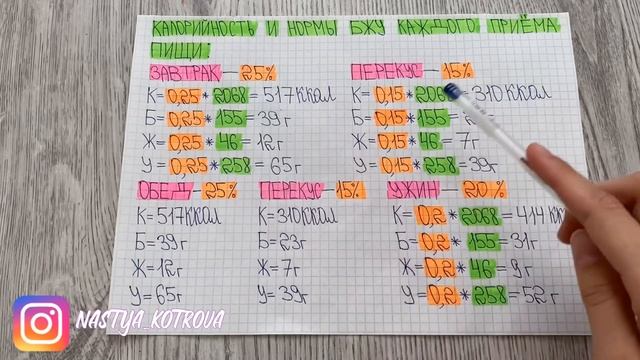 КАЛОРИЙНОСТЬ И НОРМЫ БЖУ КАЖДОГО ПРИЁМА
ПИЩИ
ЗАВТРАК – 25%
К= 0,25 * 2068 = 517 ККАЛ
Б= 0,25 * 155 = 39 г
Ж= 0,25 * 46 = 12 г
У= 0,25 * 258 = 65 г
ПЕРЕКУС – 15%
К= 0,15 * = 310 ККАЛ
Б= 0,15 * 155 =
Ж= 0,15 * 46 = 7 г
У= 0,15 * 258 = 39 г
ОБЕД – 25%
К= 517 ККАЛ
Б= 39 г
Ж= 12 г
У= 65 г
ПЕРЕКУС – 15%
К= 310 ККАЛ
Б= 23 г
Ж= 7 г
У= 39 г
УЖИН – 20%
К= 0,2 * 2068 = 414 КК
Б= 0,2 * 155 = 31 г
Ж= 0,2 * 46 = 9 г
У= 0,2 * 258 = 52 г
NASTYA_KOTROVA